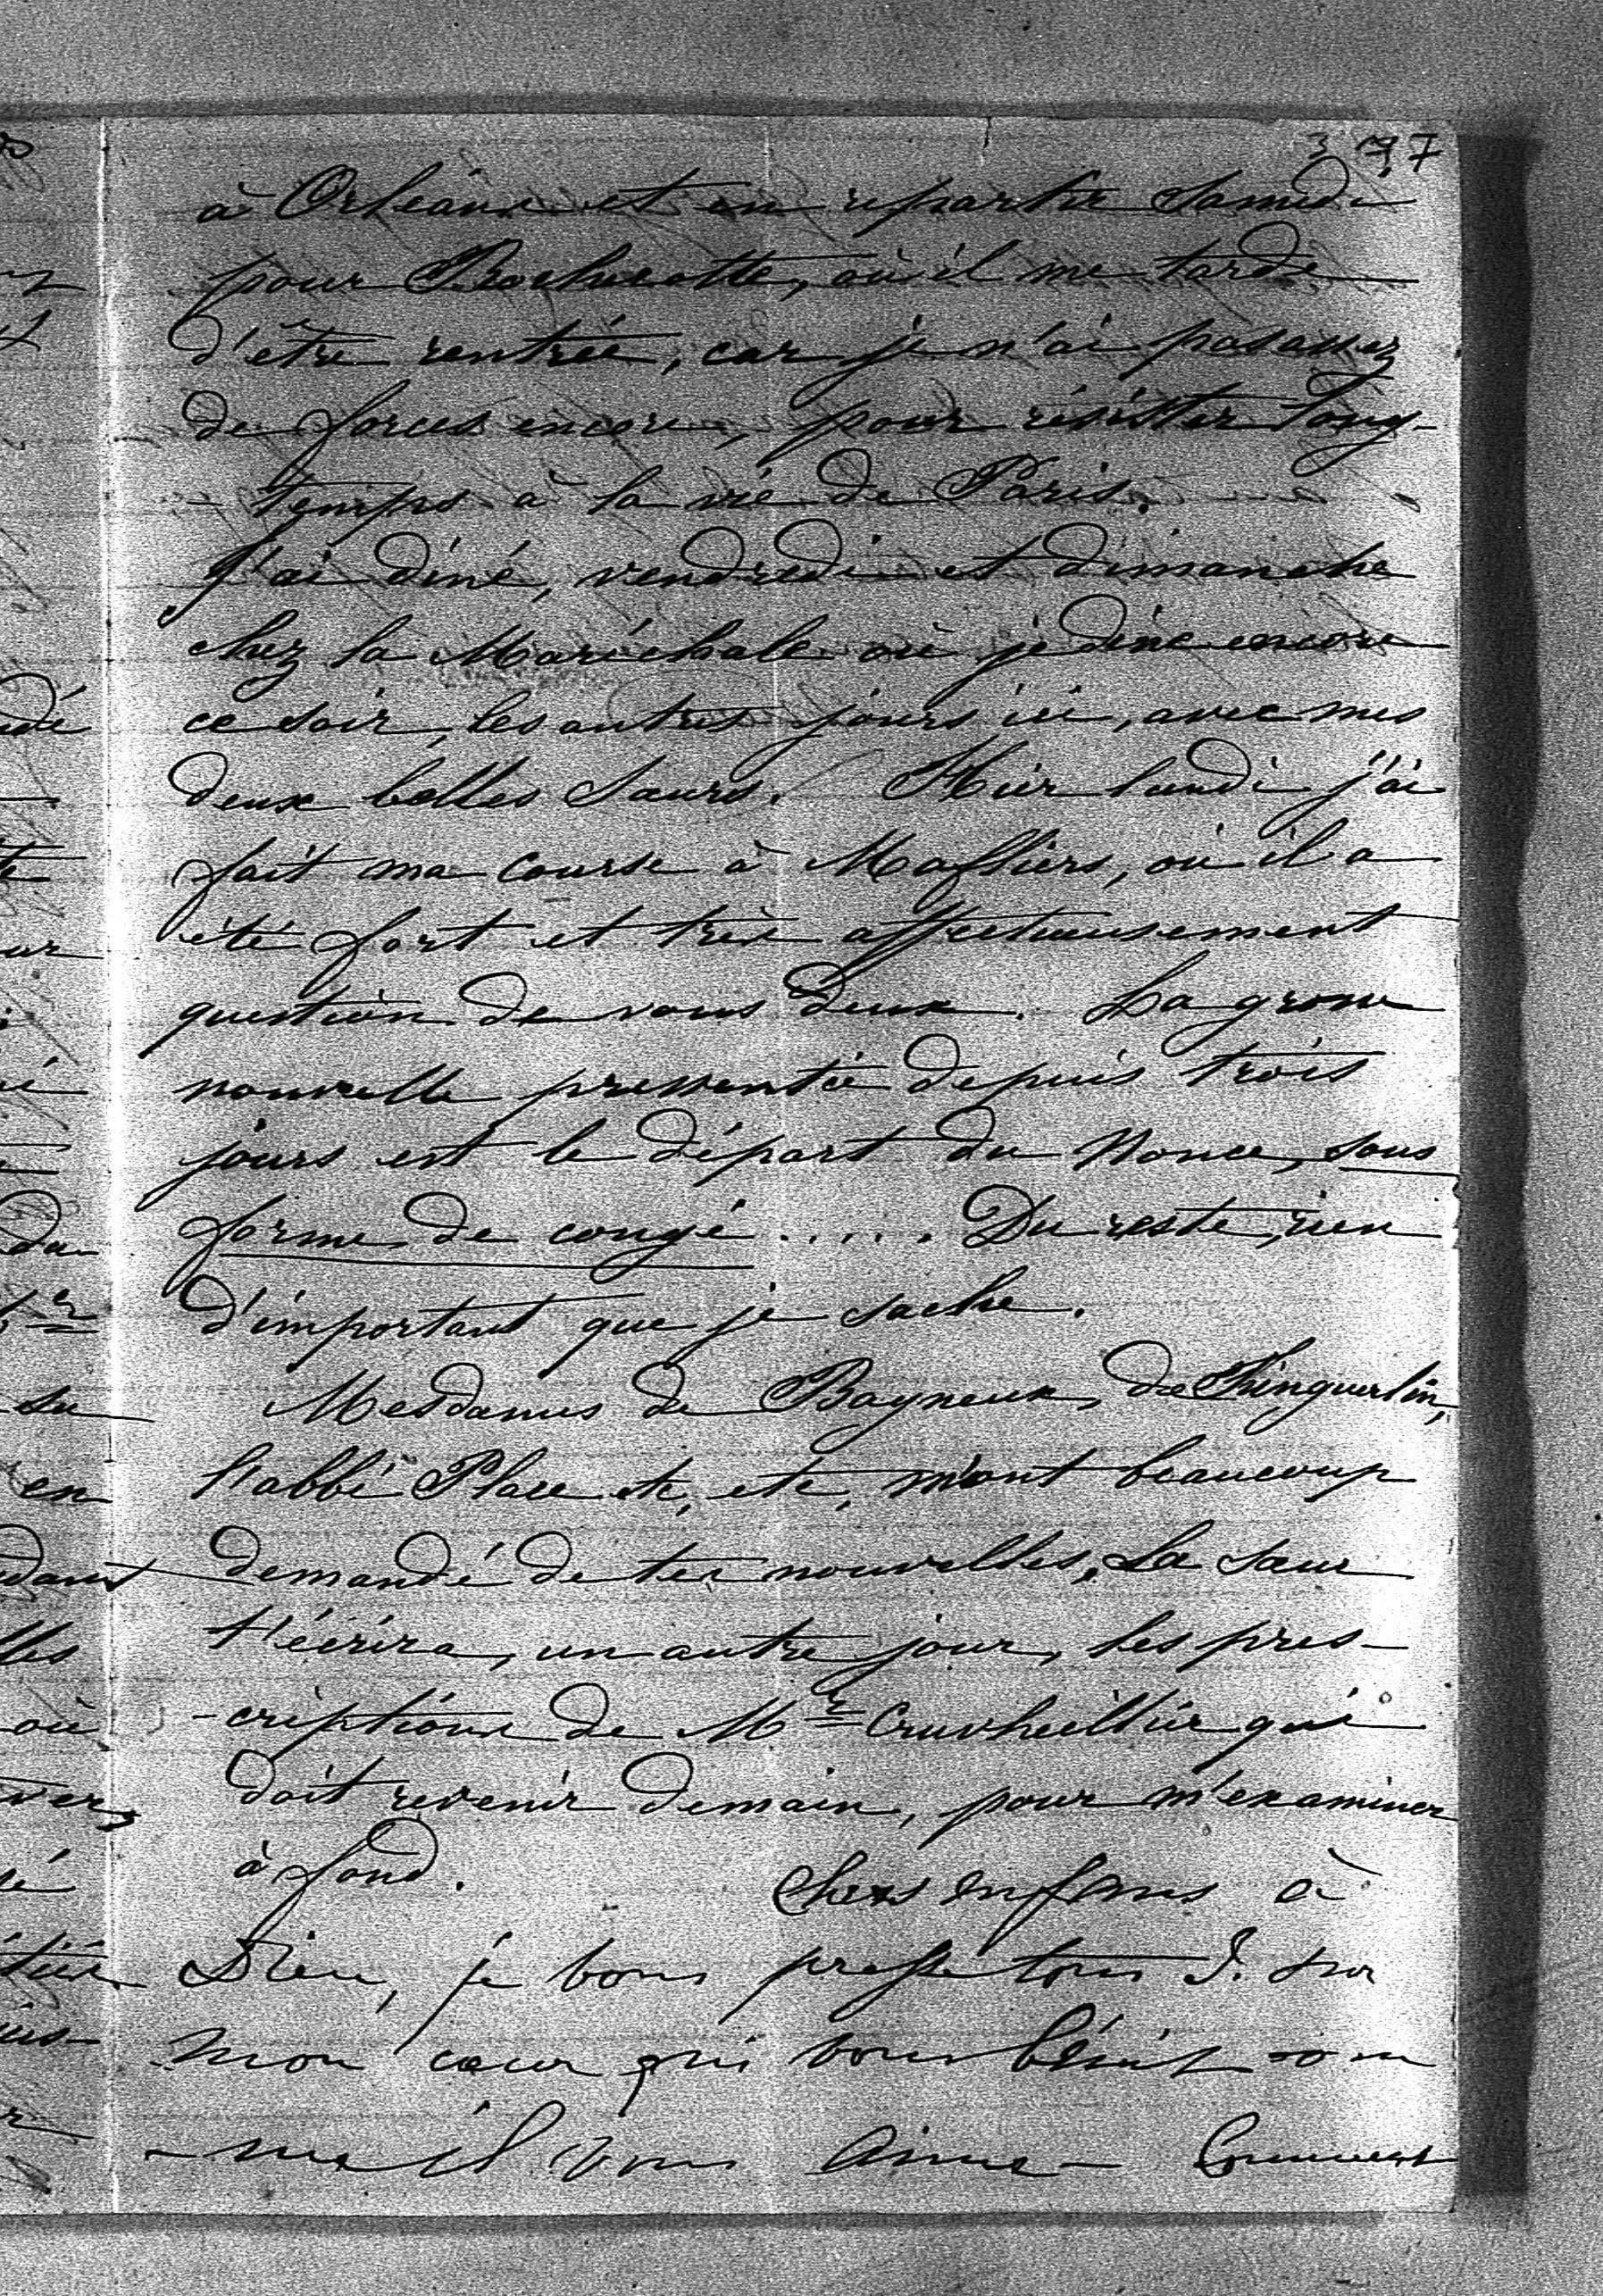 377
à Orléans et en repartir Samedi
pour Rochecotte, où il me tarde
d'être rentrée, car je n'ai pas assez
de forces encore, pour résister long-
temps à la vie de Paris.
J'ai diné, vendredi et dimanche
chez la Maréchale où je dine encore
ce soir, les autres jours ici, avec mes
deux belles Sœurs. Hier lundi j'ai
fait ma course à Maffliers, où il a
été fort et très affectueusement
question de vous deux. La grosse
nouvelle pressentie depuis trois
jours est le départ du Nonce, sous
forme de congé ..... Du reste, rien
d'important que je sache.
Mesdames de Bayneux, de
l'abbé Place etc, etc, m'ont beaucoup
demandé de tes nouvelles. La Sœur
t'écrira, un autre jour, les pres-
-criptions de Mr Cruvheillier qui
doit revenir demain, pour m'examiner
à fond. Chers enfans à
Dieu, je vous presse tous 3. sur
mon cœur qui vous bénit com
-me il vous aime